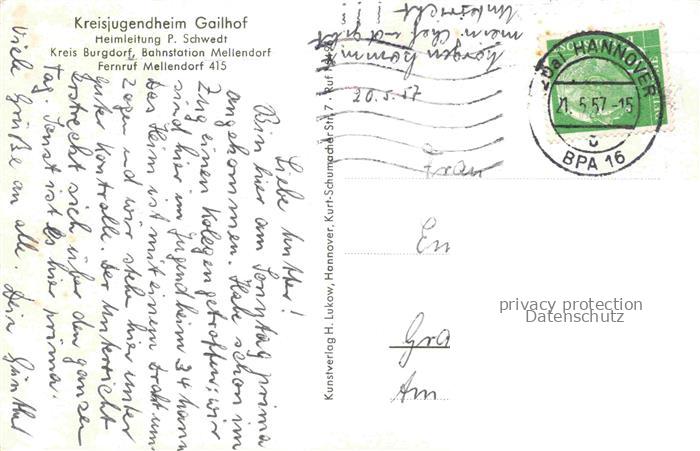 Kreisjugendheim Gailhof
Heimleitung P. Schwedt
Kreis Burgdorf, Bahnstation Mellendorf
Fernruf Mellendorf 415
20.5.57
Liebe Mutter!
Bin hier am Sonntag prima
angekommen. Habe schon im
Zug einen Kolegen getroffen; wir
sind hier im Jugendheim 34 Mann
Das Heim ist mit einem Draht um-
zogen und wir stehn hier unter
guter Kontrolle. Der Unterricht
erstreckt sich über den ganzen
Tag. Sonst ist es hier prima.
Viele Grüße an alle. Dein Günther
Morgen kommt
mein Chef und gibt
Unterricht
!!!
Kunstverlag H. Lukow, Hannover, Kurt-Schumacher Str. 7 · Ruf
HANNOVER
21.5.57-15
u
BPA 16
Frau
En
Gra
Am
privacy protection
Datenschutz